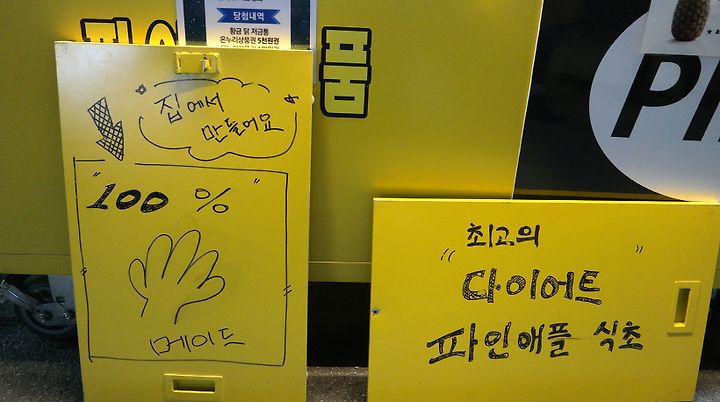 당첨내역
황금 닭 저금통
온누리상품권 5천원권
품
집에서
만들어요
"100 %"
메이드
PI
"최고의"
다이어트
파인애플 식초